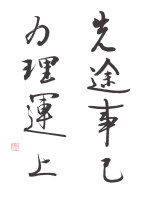 先途事已
為理運上